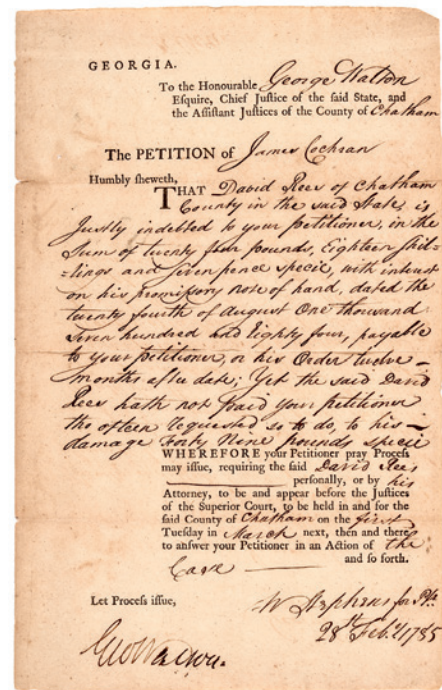 GEORGIA.
To the Honourable George Walton
Esquire, Chief Justice of the said State, and
the Assistant Justices of the County of Chatham
The PETITION of James Cochran
Humbly sheweth,
THAT David Rees of Chatham
County in the said State, is
Justly indebted to your petitioner, in the
Sum of twenty four pounds, Eighteen Shil-
-lings and seven pence specie, with interest
on his promissory note of hand, dated the
twenty fourth of August One thousand
Seven hundred and Eighty four, payable
to your petitioner, or his Order twelve
months after date; Yet the said David
Rees hath not paid your petitioner
tho often requested so to do, to his
damage Forty Nine pounds specie
WHEREFORE your Petitioner pray Process
may issue, requiring the said David Rees
personally, or by his
Attorney, to be and appear before the Justices
of the Superior Court, to be held in and for the
said County of Chatham on the first
Tuesday in March next, then and there
to answer your Petitioner in an Action of the
Case and so forth.
Let Process issue,
W Stephens for
28th Feby 1785
Geo Walton.